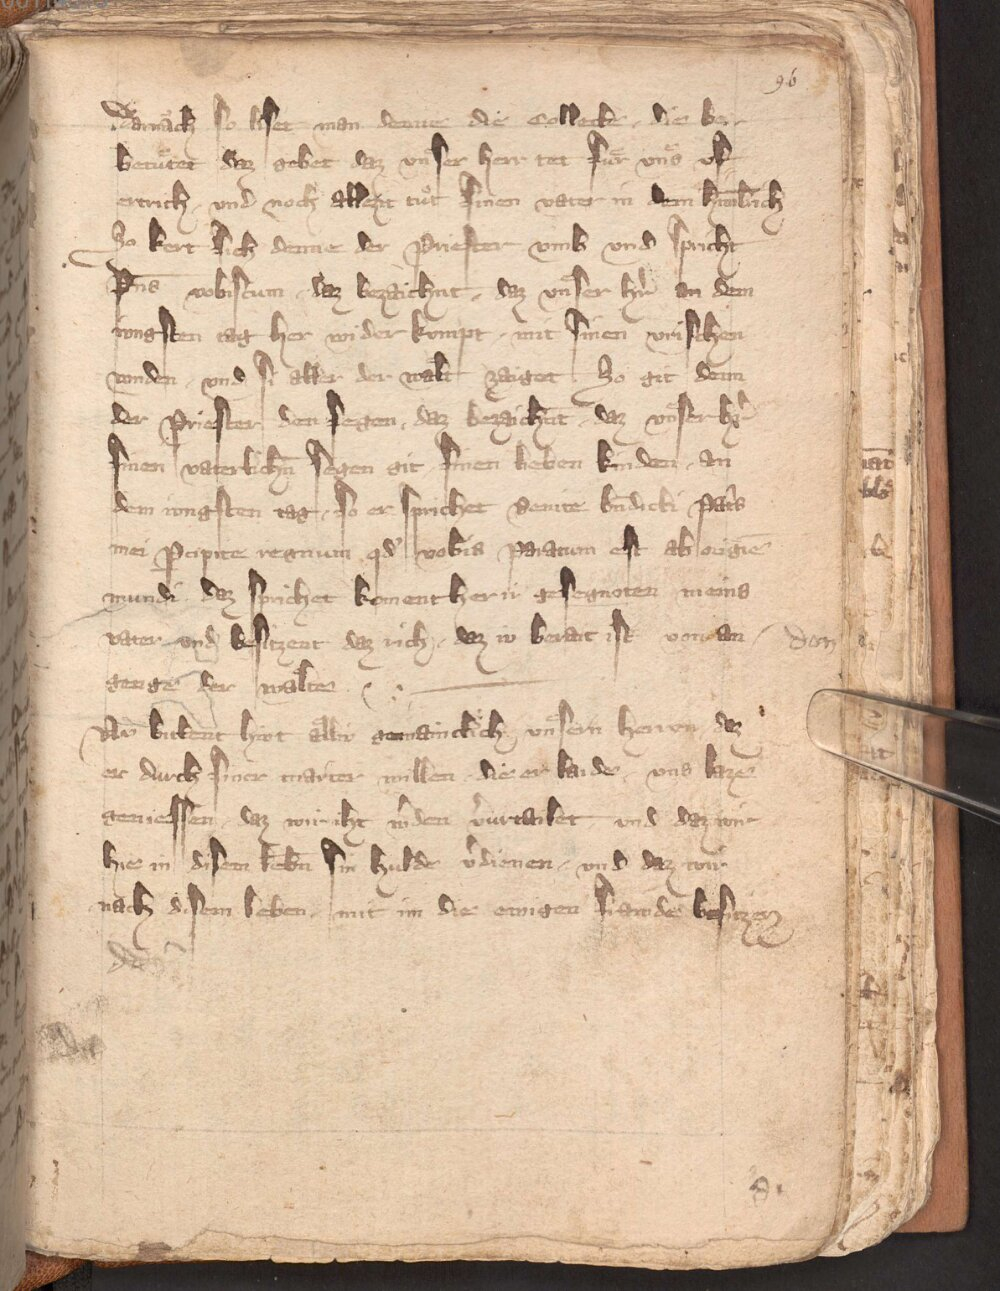 96
Darnach so liset man denne die Collecte, die be-
betutet daz gebet daz vnser herr tet fur vns vf
ertrich, vnd noch allezit tut sinen vater in dem himelrich
So kert sich denne der Priester vmb vnd spricht
Dns vobiscum, daz bezaichnt, daz vnser hr an dem
iungsten tag her wider kompt, mit sinen vrischen
wnden, vnd si aller der walt zaiget. So git denn
der Priester den segen, daz bezaichnt, daz vnser hr
sinen vaterlichn segen git, sinen lieben kinden, an
dem iungsten tag, so er sprichet Venite bndicti Pats
mei Pcipite regnum qd vobis paratum est ab origie
mundi. daz sprichet koment her ir gesegnoten meins
vater vnd besitzent daz rich, daz iv berait ist von an
genge der welte
Nv bittent hivt alliv gemainclich, vnsern herren, daz
er durch siner marter willen, die er laide, vns laze
geniessen, daz wir iht wden vvrtailet, vnd daz wir
hie in disem lebn sin hulde vdienen, vnd daz wir
nach disem leben, mit im die ewigen fraude besitzen